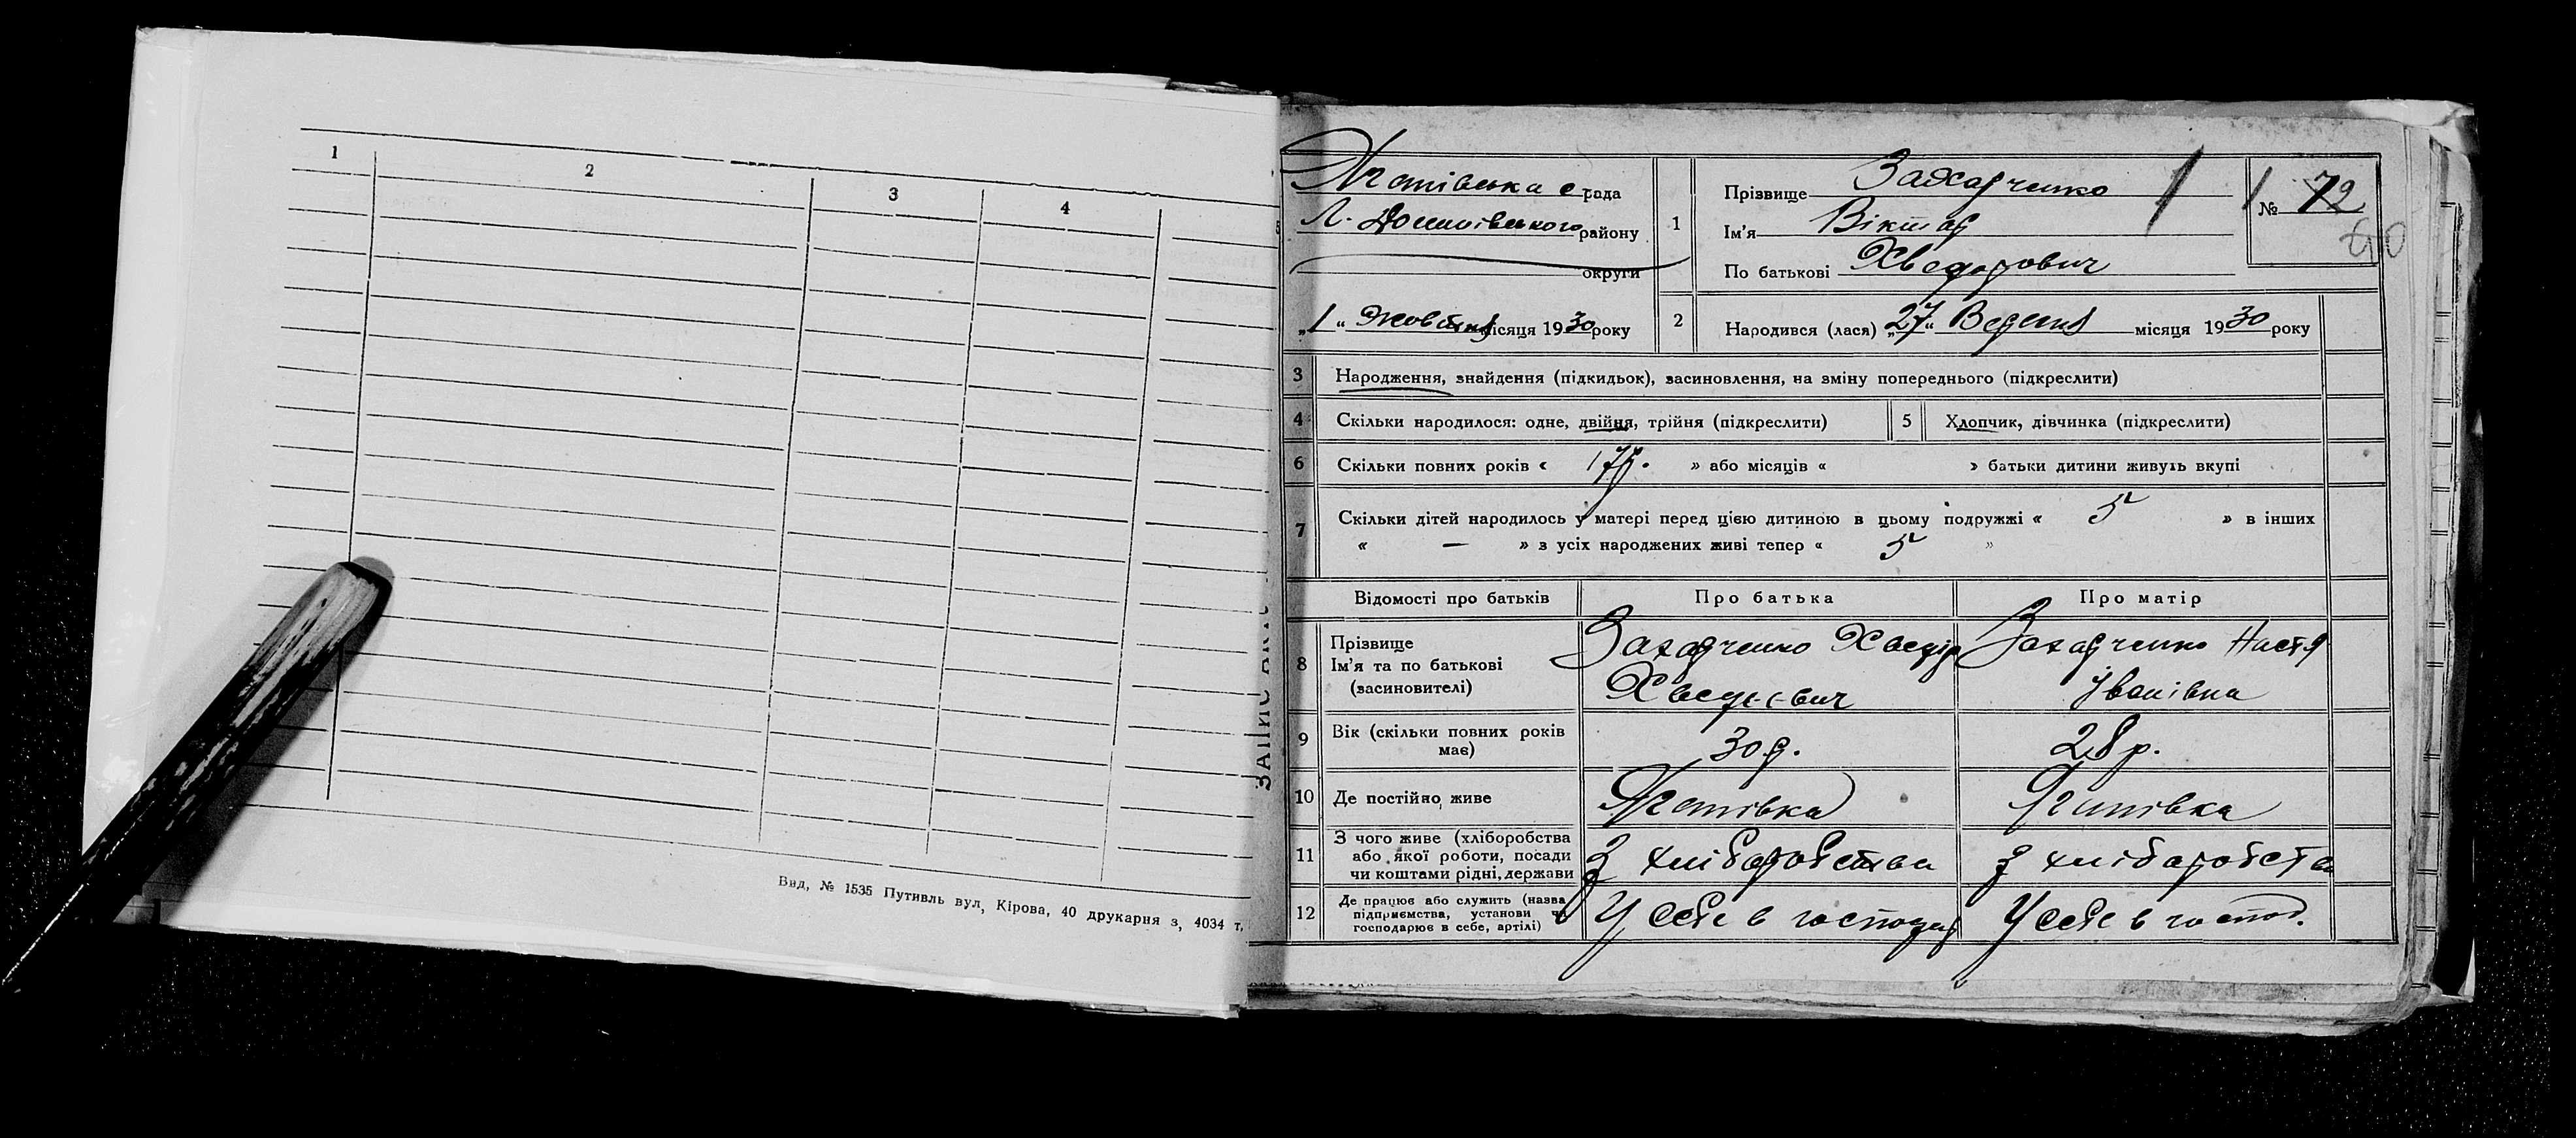 1 2 3 4
Вид, № 1535 Путивль вул, Кірова, 40 друкарня з, 4034 т,
ЗАПИС
рада
Л. району
округи
„1“ Жовтня місяця 1930 року
1 Прізвище Захарченко
Ім'я Віктор
По батькові Хведорович
№ 72
2 Народився (лася) „27“ Вересня місяця 1930 року
3 Народження, знайдення (підкидьок), засиновлення, на зміну попереднього (підкреслити)
4 Скільки народилося: одне, двійня, трійня (підкреслити) 5 Хлопчик, дівчинка (підкреслити)
6 Скільки повних років « » або місяців « » батьки дитини живуть вкупі
7 Скільки дітей народилось у матері перед цією дитиною в цьому подружжі « 5 » в інших
« — » з усіх народжених живі тепер « 5 »
Відомості про батьків Про батька Про матір
8 Прізвище
Ім'я та по батькові
(засиновителі)
Захарченко Хведір
Захарченко Настя
Іванівна
9 Вік (скільки повних років
має)
30 р.
28 р.
10 Де постійно живе
11 З чого живе (хліборобства
або якої роботи, посади
чи коштами рідні, держави
З хліборобства
З хліборобства
12 Де працює або служить (назва
підприємства, установи чи
господарює в себе, артілі)
У себе в господ
У себе в господ.